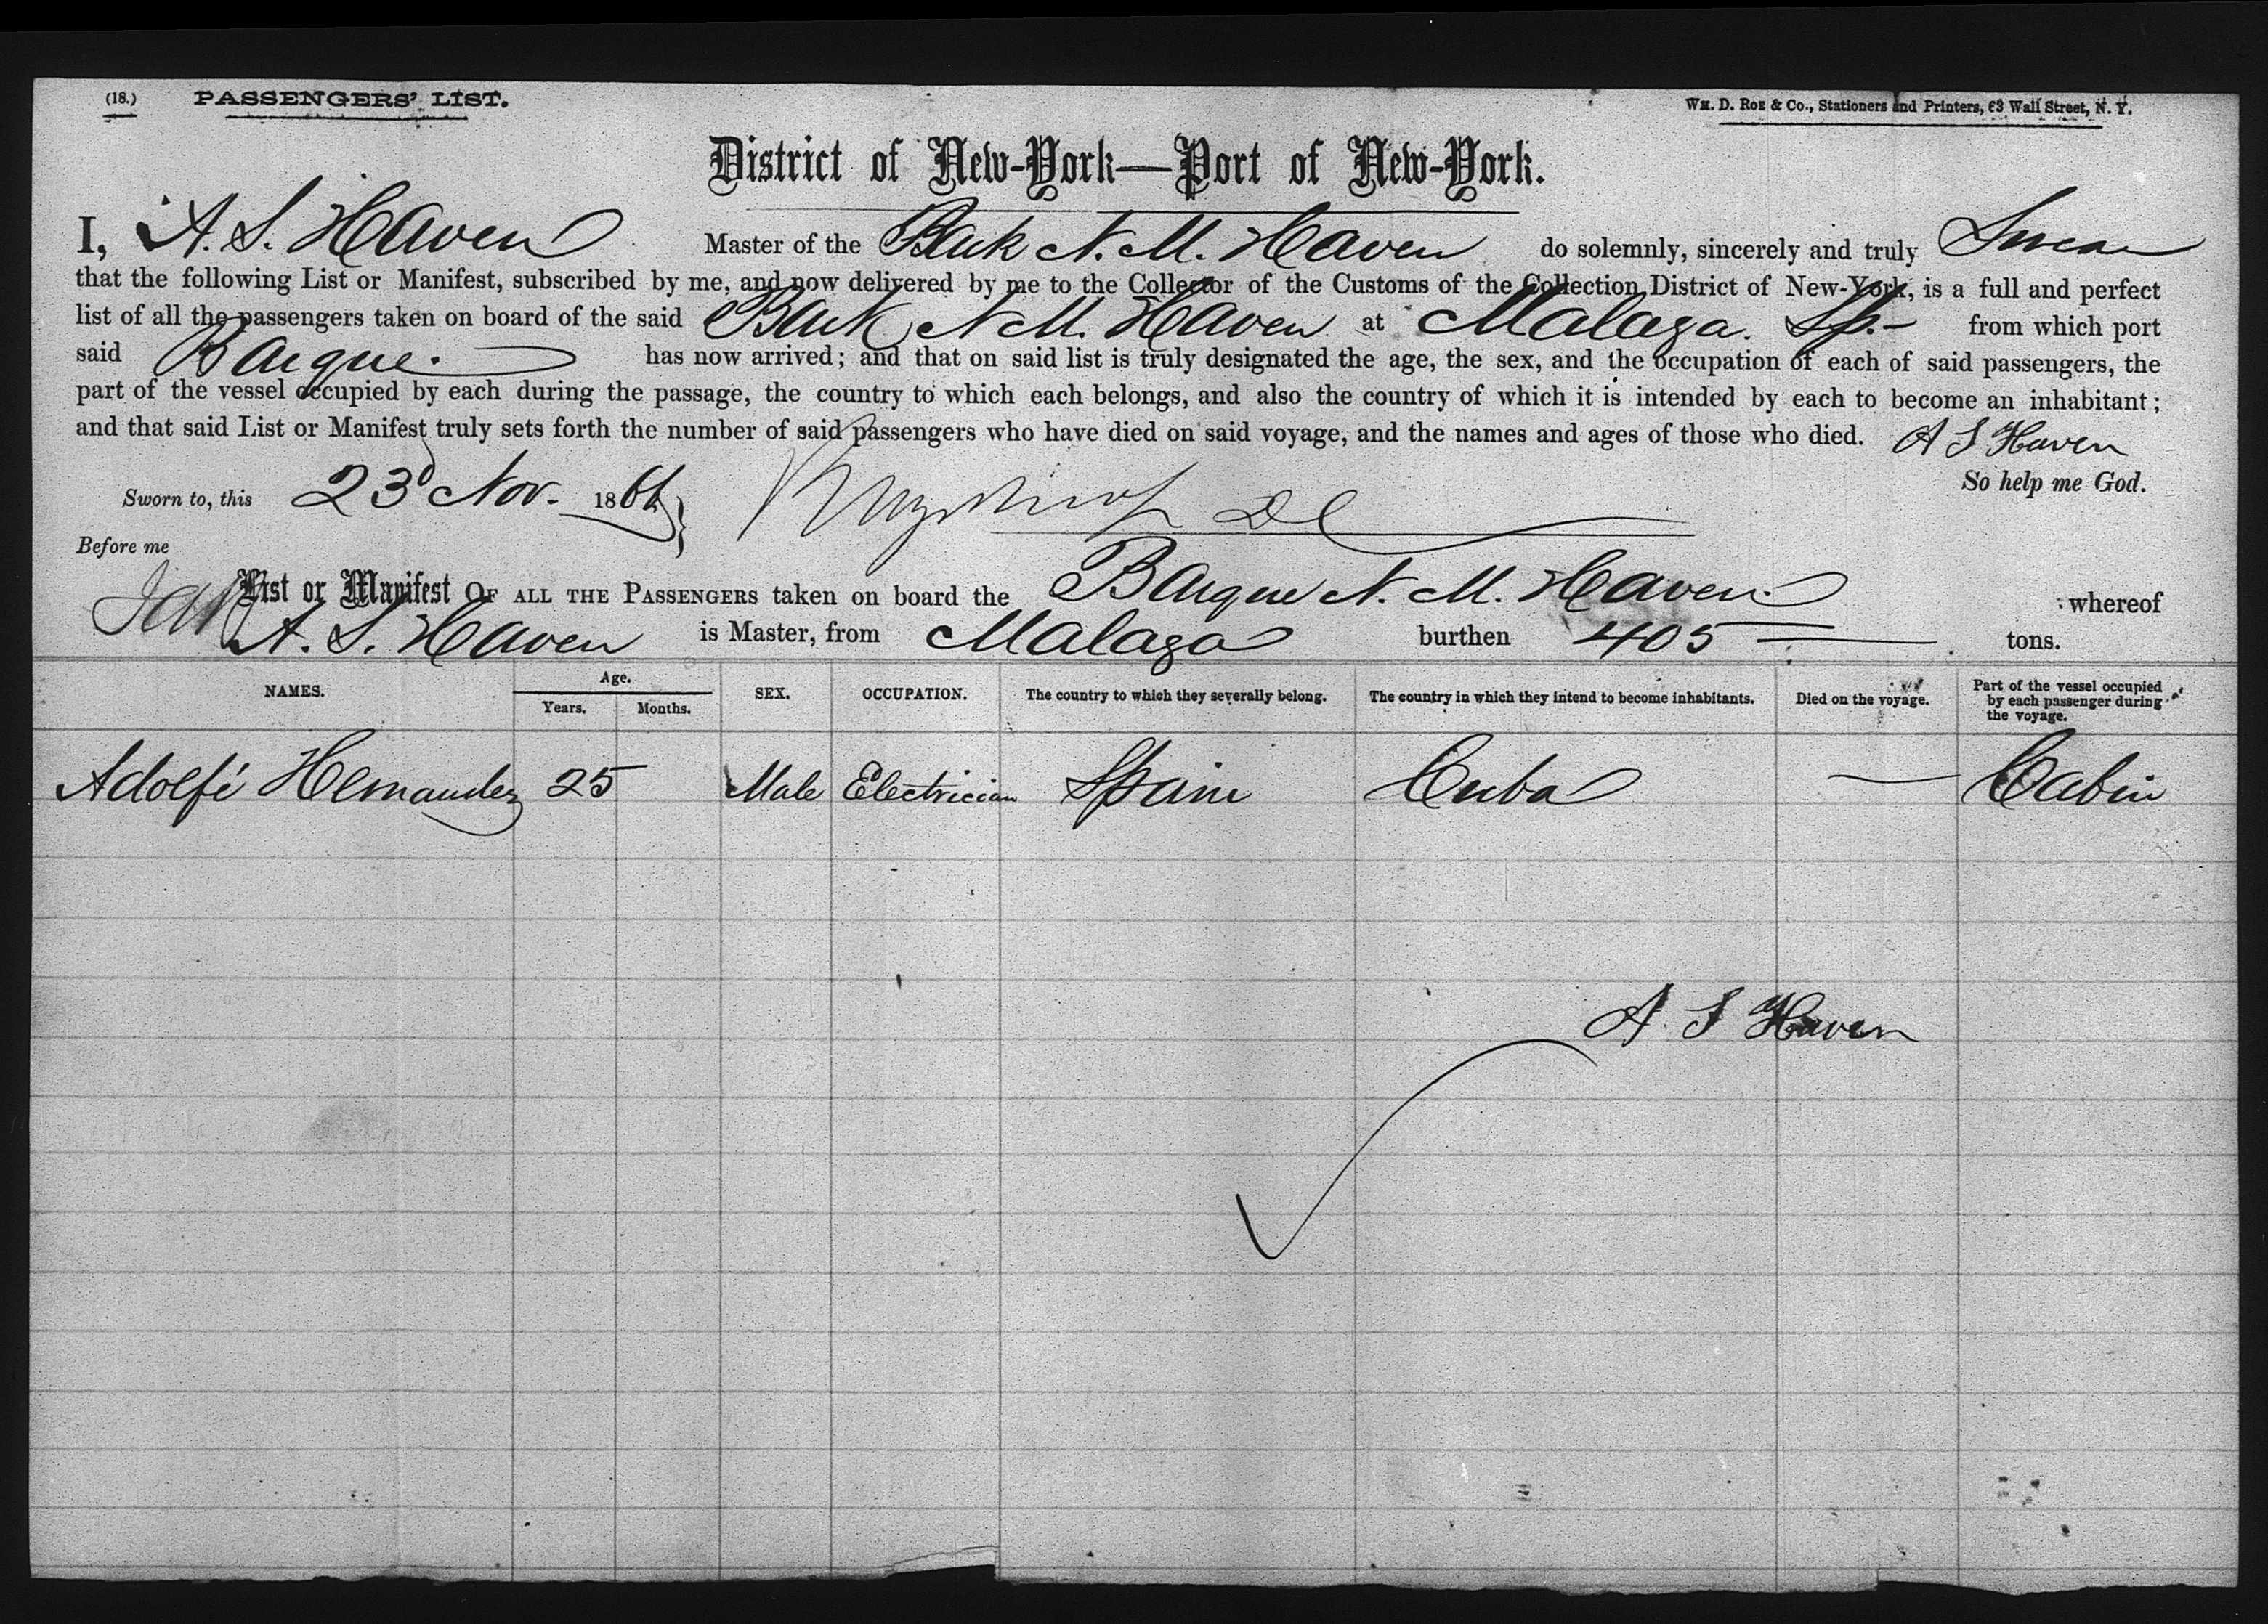 (18.) PASSENGERS' LIST. WM. D. ROE & Co., Stationers and Printers, 63 Wall Street, N. Y.
District of New-York—Port of New-York.
I, A. S. Haven Master of the Bark N. M. Haven do solemnly, sincerely and truly Swear
that the following List or Manifest, subscribed by me, and now delivered by me to the Collector of the Customs of the Collection District of New-York, is a full and perfect
list of all the passengers taken on board of the said Bark N M. Haven at Malaga. Sp.- from which port
said Barque. has now arrived; and that on said list is truly designated the age, the sex, and the occupation of each of said passengers, the
part of the vessel occupied by each during the passage, the country to which each belongs, and also the country of which it is intended by each to become an inhabitant;
and that said List or Manifest truly sets forth the number of said passengers who have died on said voyage, and the names and ages of those who died. A S Haven
So help me God.
Sworn to, this 23d Nov. 1866
Before me
List or Manifest OF ALL THE PASSENGERS taken on board the Barque N. M. Haven whereof
A. S. Haven is Master, from Malaga burthen 405 tons.
NAMES. Age. Years. Months. SEX. OCCUPATION. The country to which they severally belong. The country in which they intend to become inhabitants. Died on the voyage. Part of the vessel occupied by each passenger during the voyage.
Adolfé Hernandez 25 Male Electrician Spain Cuba — Cabin
A. S Haven